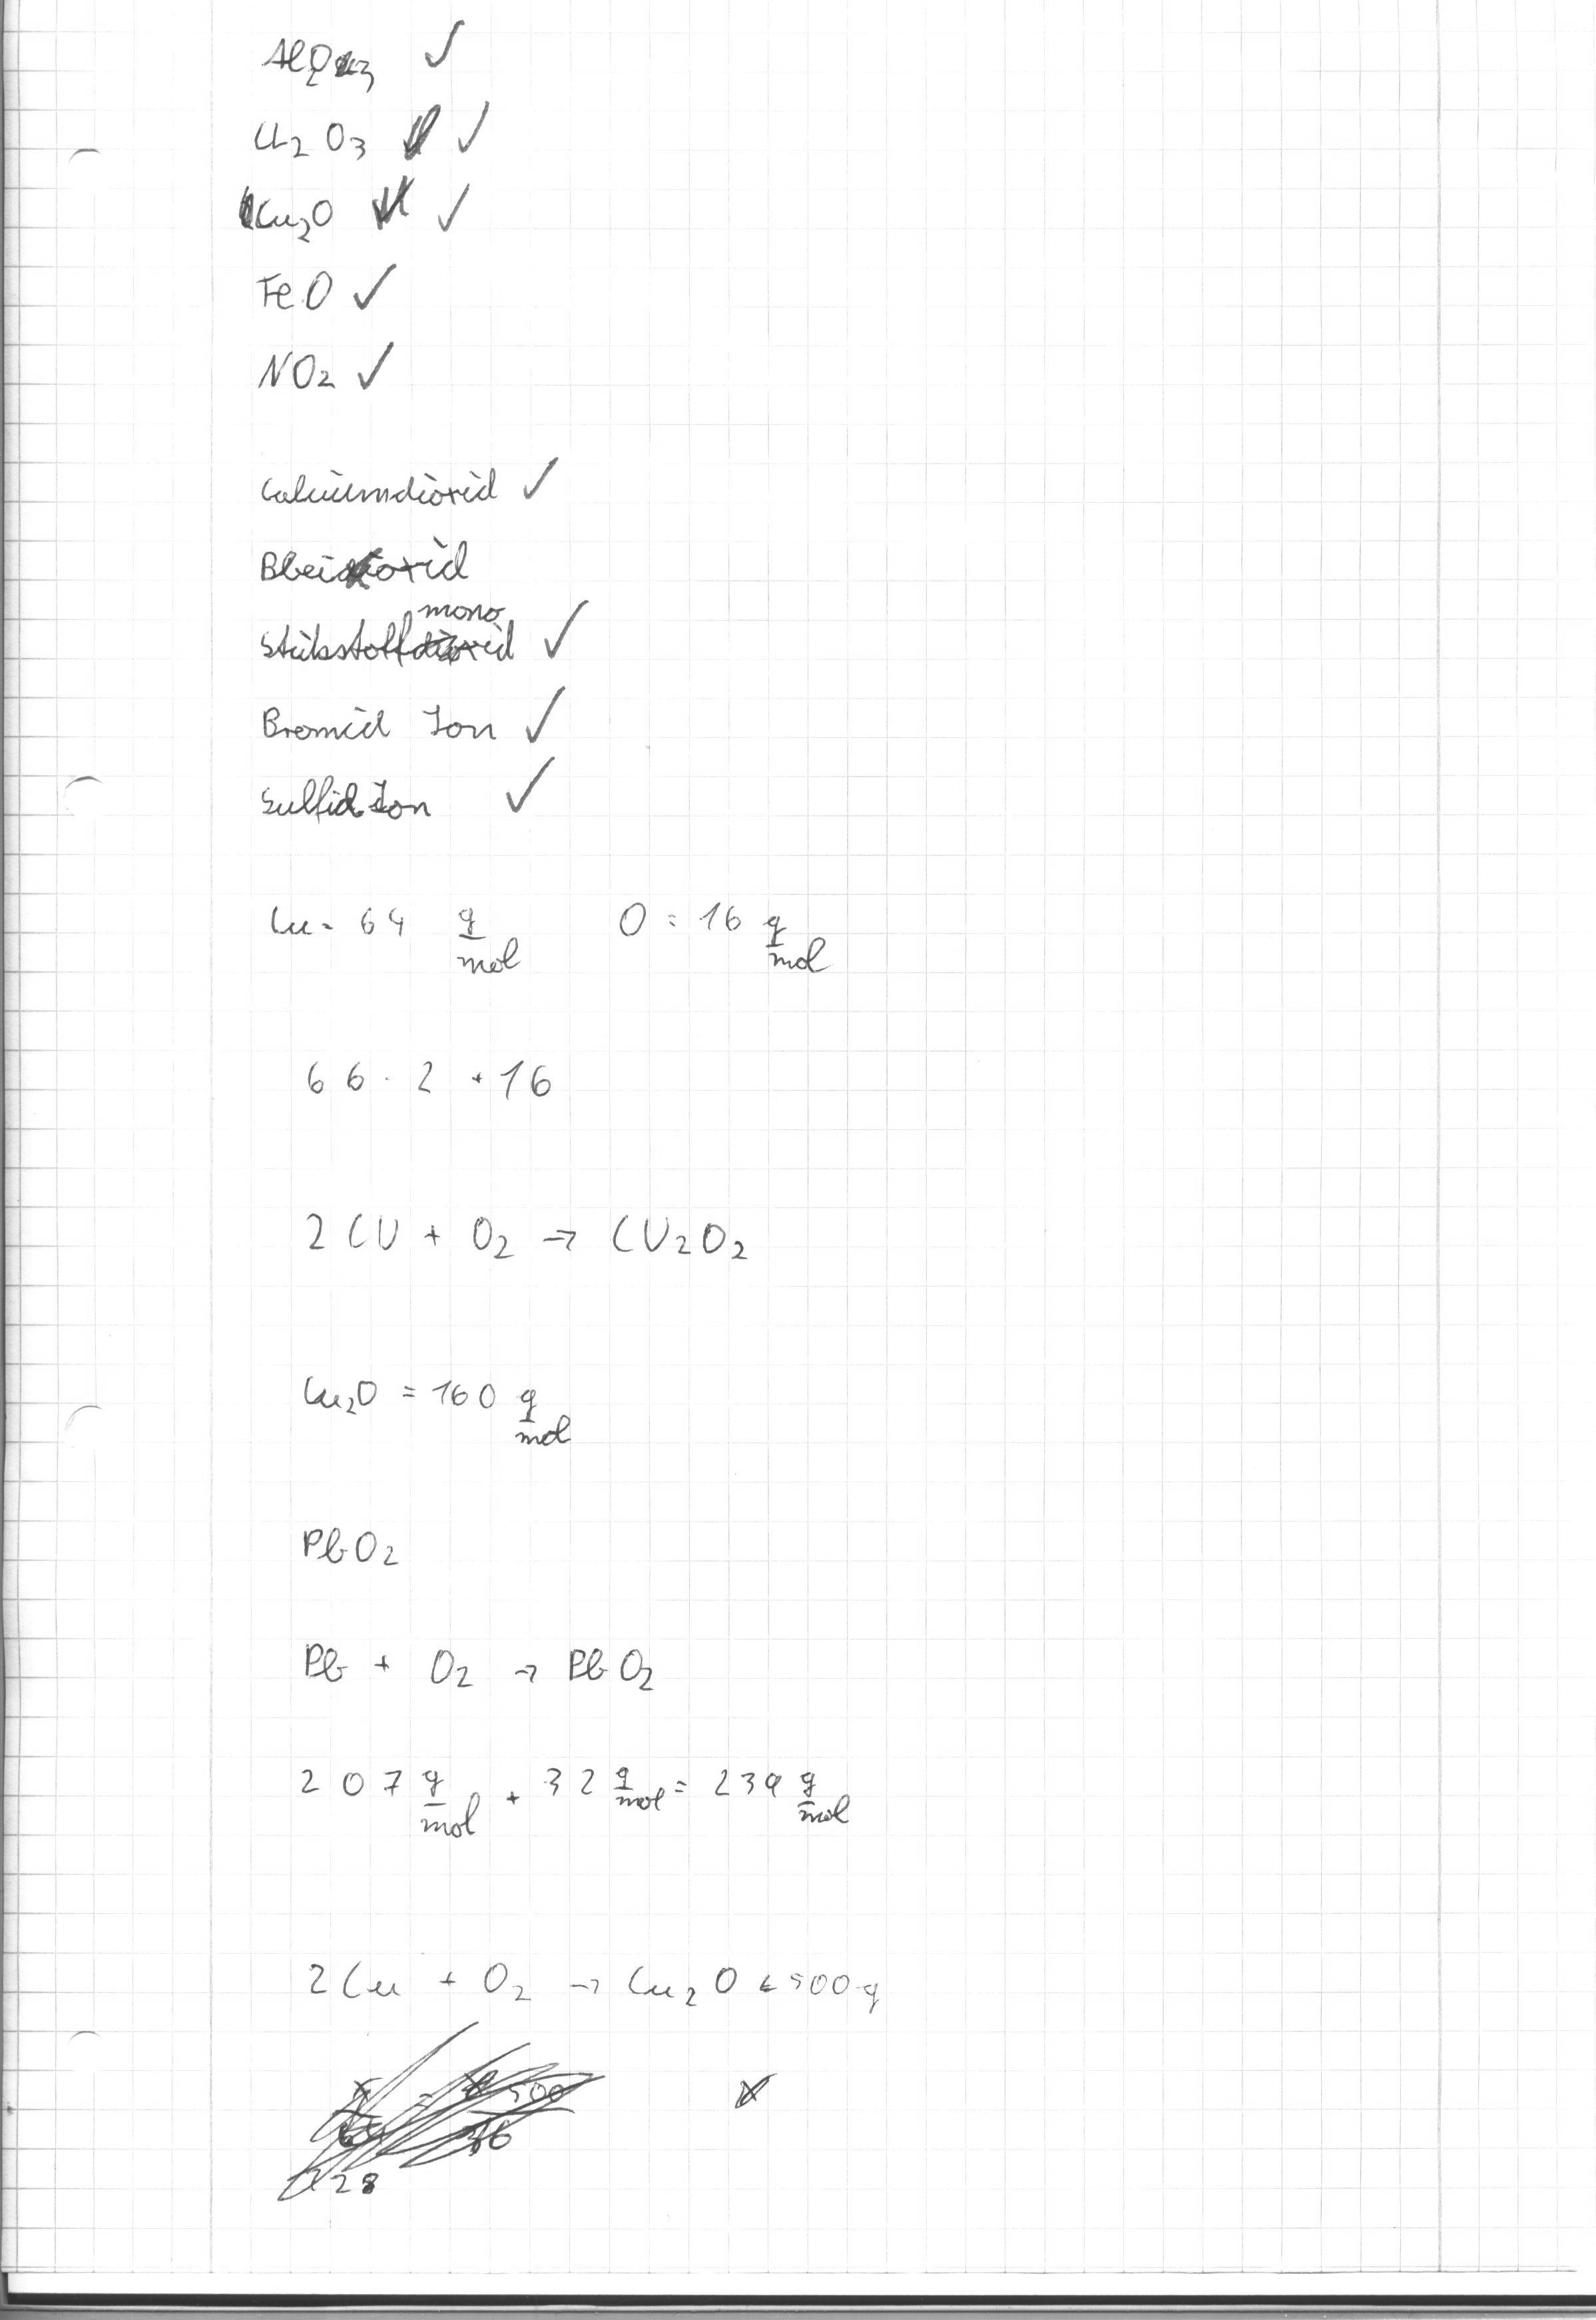 Al₂O₃ ✓
Cl₂ O₃ ✓
Cu₂O ✓
FeO ✓
NO₂ ✓
Calciumdioxid ✓
Bleioxid
mono
Stickstoffdioxid ✓
Bromid Ion ✓
Sulfid Ion ✓
Cu = 64 g/mol O = 16 g/mol
66 · 2 + 16
2 CU + O₂ → CU₂O₂
Cu₂O = 160 g/mol
PbO₂
Pb + O₂ → PbO₂
207 g/mol + 32 g/mol = 239 g/mol
2 Cu + O₂ → Cu₂O ← 500 g
500
128